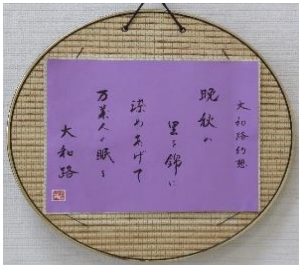 大和路幻想
晩秋の
里を錦に
染めあげて
万葉人の眠る
大和路